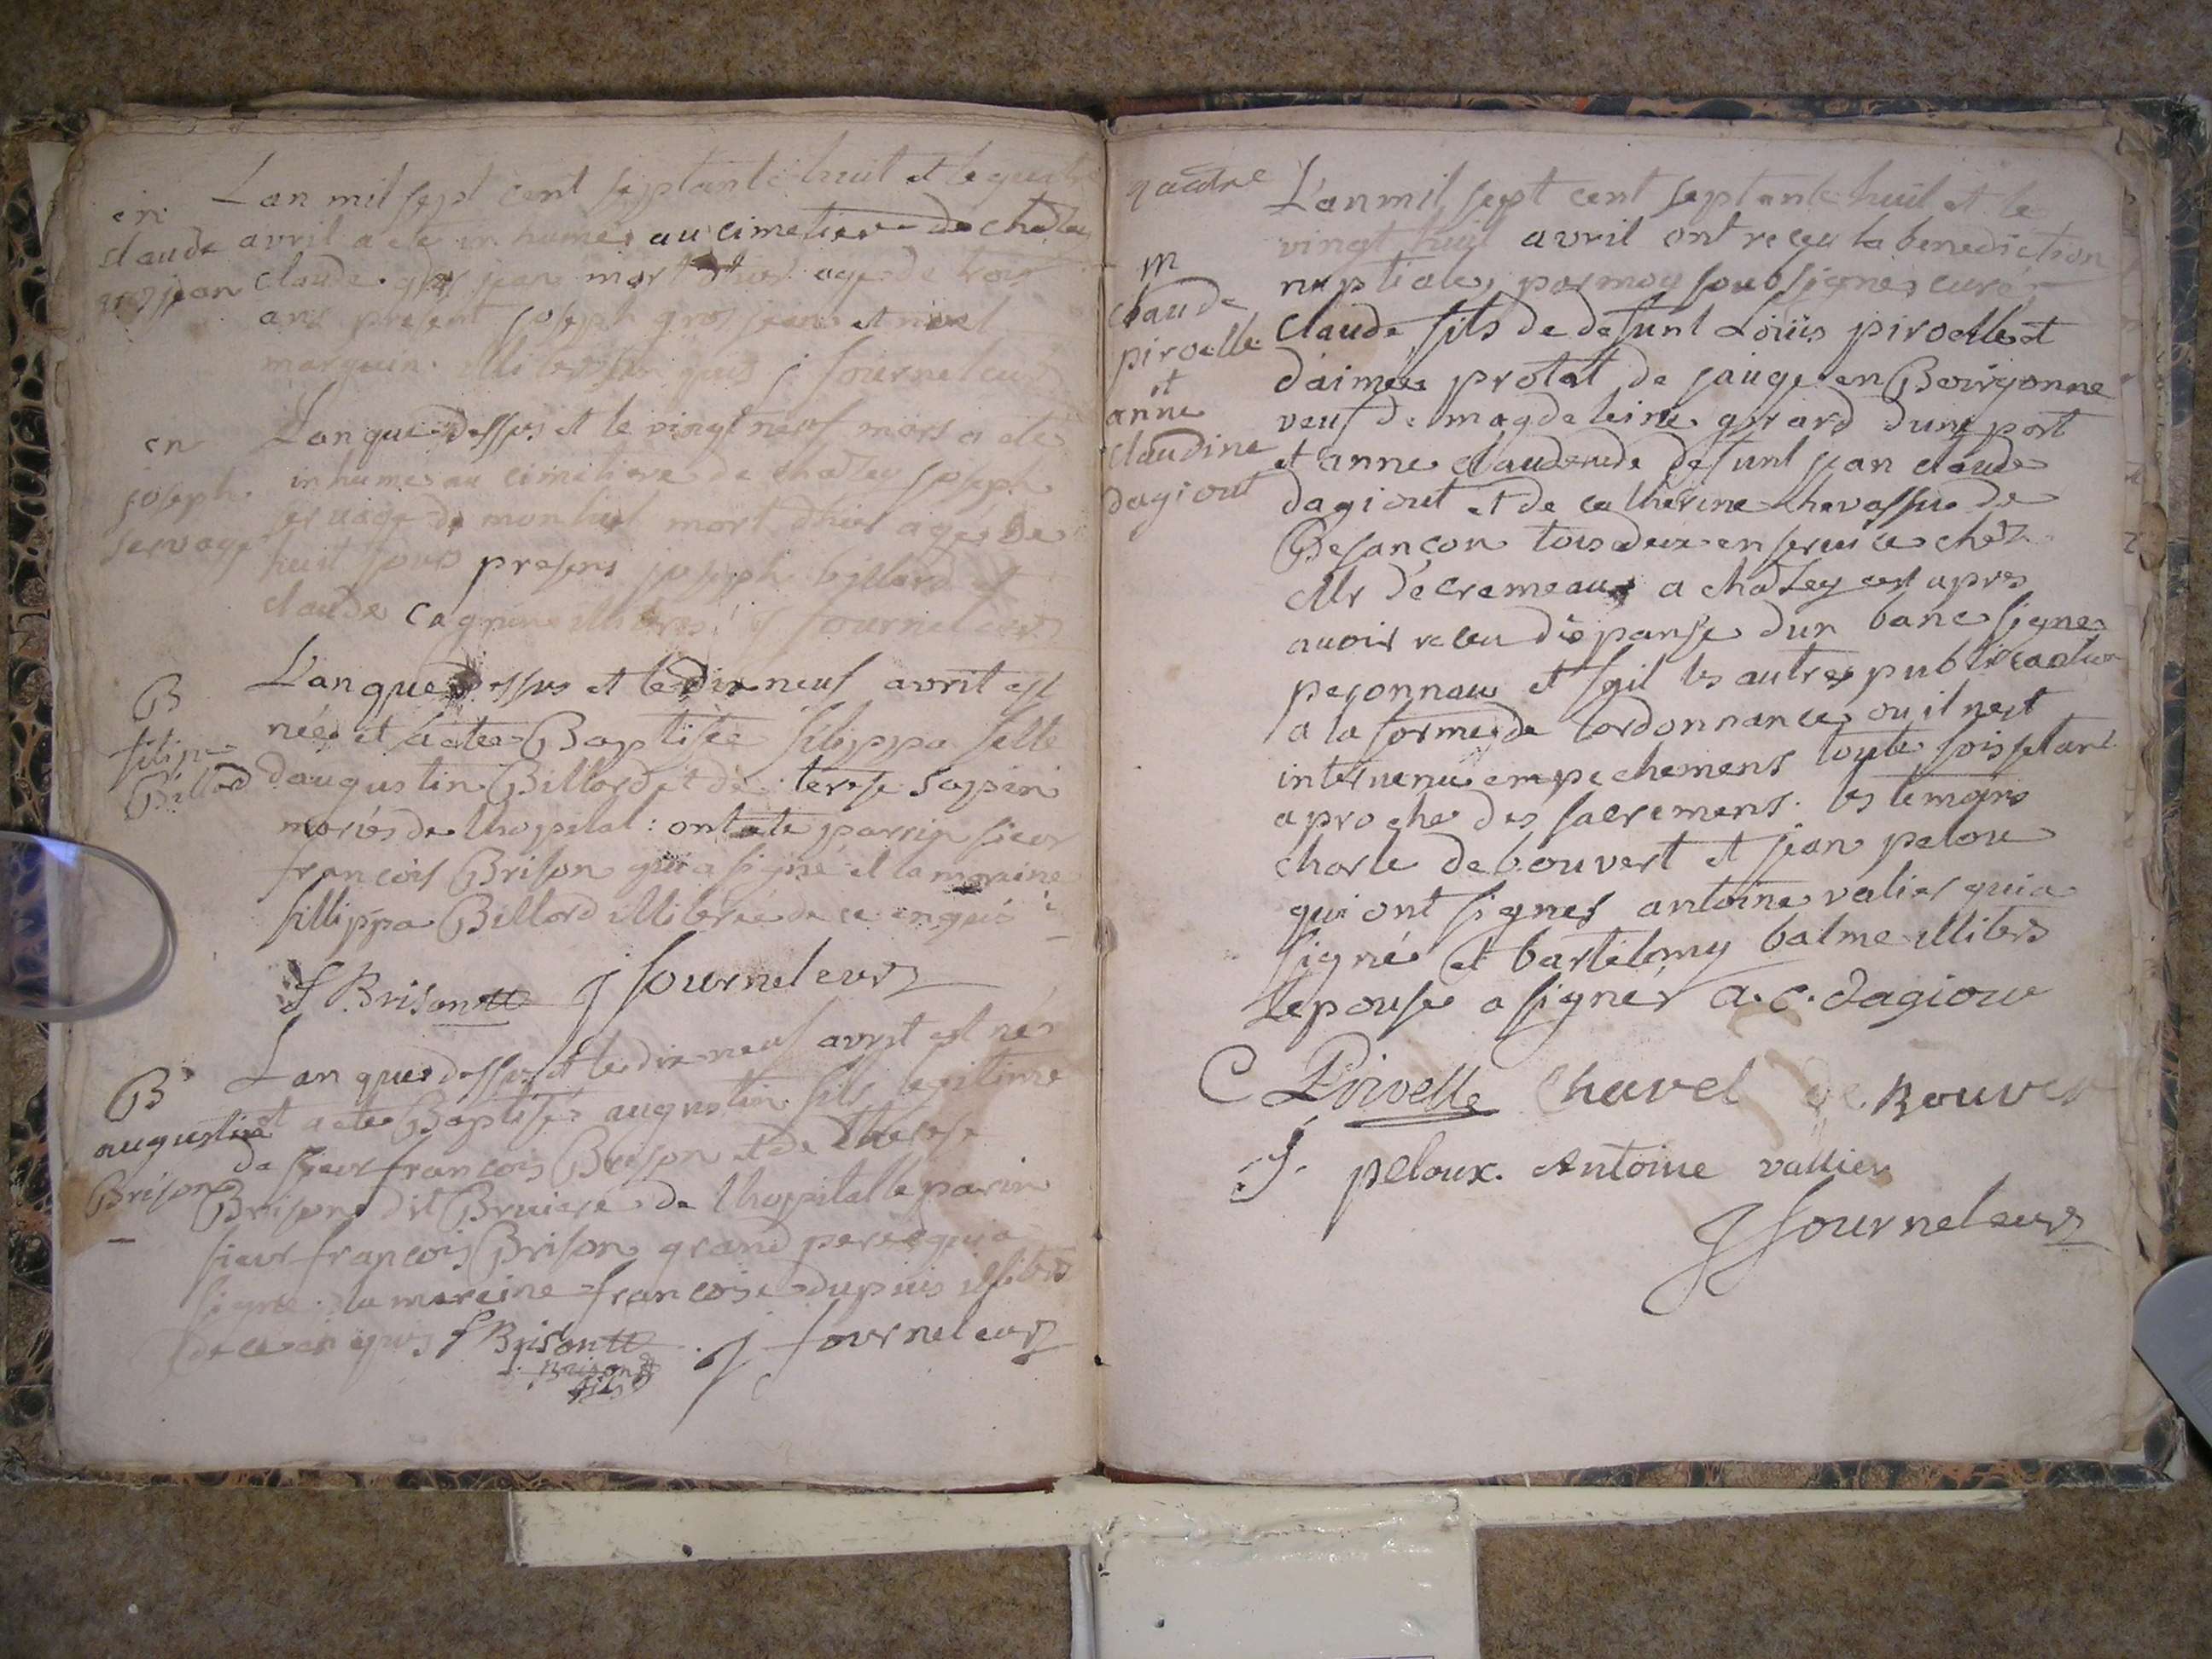 en
claude
gros jean
Lan mil sept cent septante huit et le quatre
avril a ete in humé au cimetiere de chatey
claude gros jean mort hier agé de trois
ans present joseph gros jean et
marguin illiteres j fourneleur
en
joseph
servage
Lan que dessus et le vingt neuf mars a eté
inhumé au cimetiere de chatey joseph
servage de mort hier agé de
huit jours presens joseph billard et
claude illiteres j fourneleur
B
filipe
Billard
L'an que dessus et le dix neuf avril est
née et a ete Baptisée filippa fille
daugustin Billard et de terese sapin
mariés de lhopital : ont ete parrin sieur
francois Brison qui a signé et la maraine
fillippa Billard illiterée de ce enquis
f Brison J fourneleur
B
augustin
Brison
Lan que dessus et le dix neuf avril est né
et a ete Baptisé augustin fils legitime
de sieur francois Brison et de Therese
Brison dit Bruiere de lhopital le parin
sieur francois Brison grand pere qui a
signe la mareine francoise dupuis illiteré
de ce enquis f Brison J fourneleur
Brison
fils
quatre
m
claude
piroelle
et
anne
claudine
dagiout
L'an mil sept cent septante huit et le
vingt huit avril ont receu la benediction
nuptiale, par moy soubsigné curé
Claude fils de defunt Loüis piroelle et
d'aimée protat de sauge en Bourgonne
veuf de magdeleine girard dune part
et anne claude de defunt jean claude
dagiout et de catherine chevassue de
Besançon tous deux en service chez
Mr décremeaux a chatey cest apres
avoir receu dispanse dun banc signé
peronnau et fait les autres publication
a la forme de lordonnance ou il nest
intervenu empechemens toute fois setant
aproché des sacremens. les temoins
charle debouvert et jean peloue
qui ont signés antoine valier qui a
signé et bartelemy balme illiters
Lepouse a signer a. c. dagioue
C Pirvelle Chavel de Bouver
J. peloux. Antoine vallier
J fourneleur